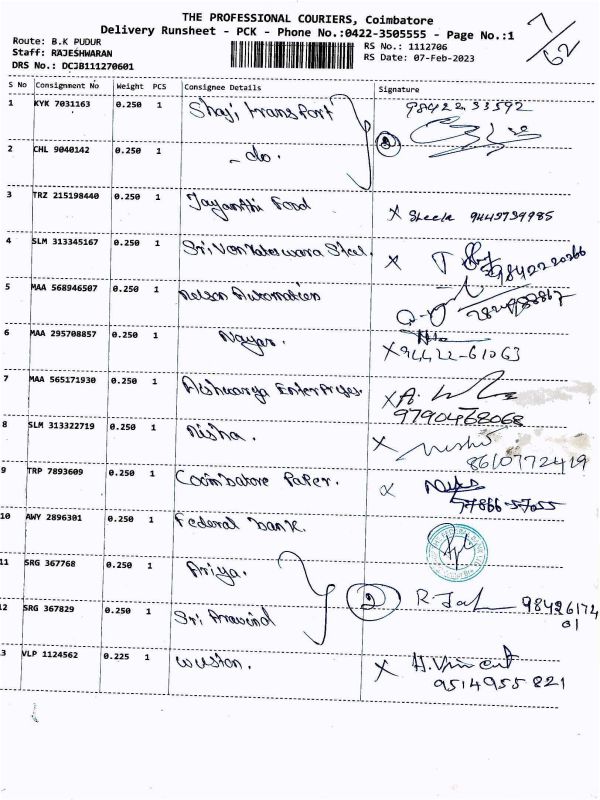 THE PROFESSIONAL COURIERS, Coimbatore
Delivery Runsheet - PCK - Phone No.:0422-3505555 - Page No.:1
7/62
Route: B.K PUDUR
RS No.: 1112706
Staff: RAJESHWARAN
RS Date: 07-Feb-2023
DRS No.: DCJB111270601
S No Consignment No Weight PCS Consignee Details Signature
1 KYK 7031163 0.250 1 Shaji transport 98422 33592
2 CHL 9040142 0.250 1 - do. 2
3 TRZ 215198440 0.250 1 Jayanthi Food X Sheela 9442739985
4 SLM 313345167 0.250 1 Sri Venkateswara Steel. X 9842220266
5 MAA 568946507 0.250 1 Nelson Automation
6 MAA 295708857 0.250 1 Nayan. X 94422-61063
7 MAA 565171930 0.250 1 Aishwarya Enterprises. X A.
9790468068
8 SLM 313322719 0.250 1 Nisha. X Nisha
8610772419
9 TRP 7893609 0.250 1 Coimbatore Paper.
77866-57055
10 AWY 2896301 0.250 1 Federal bank.
11 SRG 367768 0.250 1 Ariya.
2 R. 98426172
01
12 SRG 367829 0.250 1 Sri Aravind
3 VLP 1124562 0.225 1 Weston. X A. Vincent
9514955821